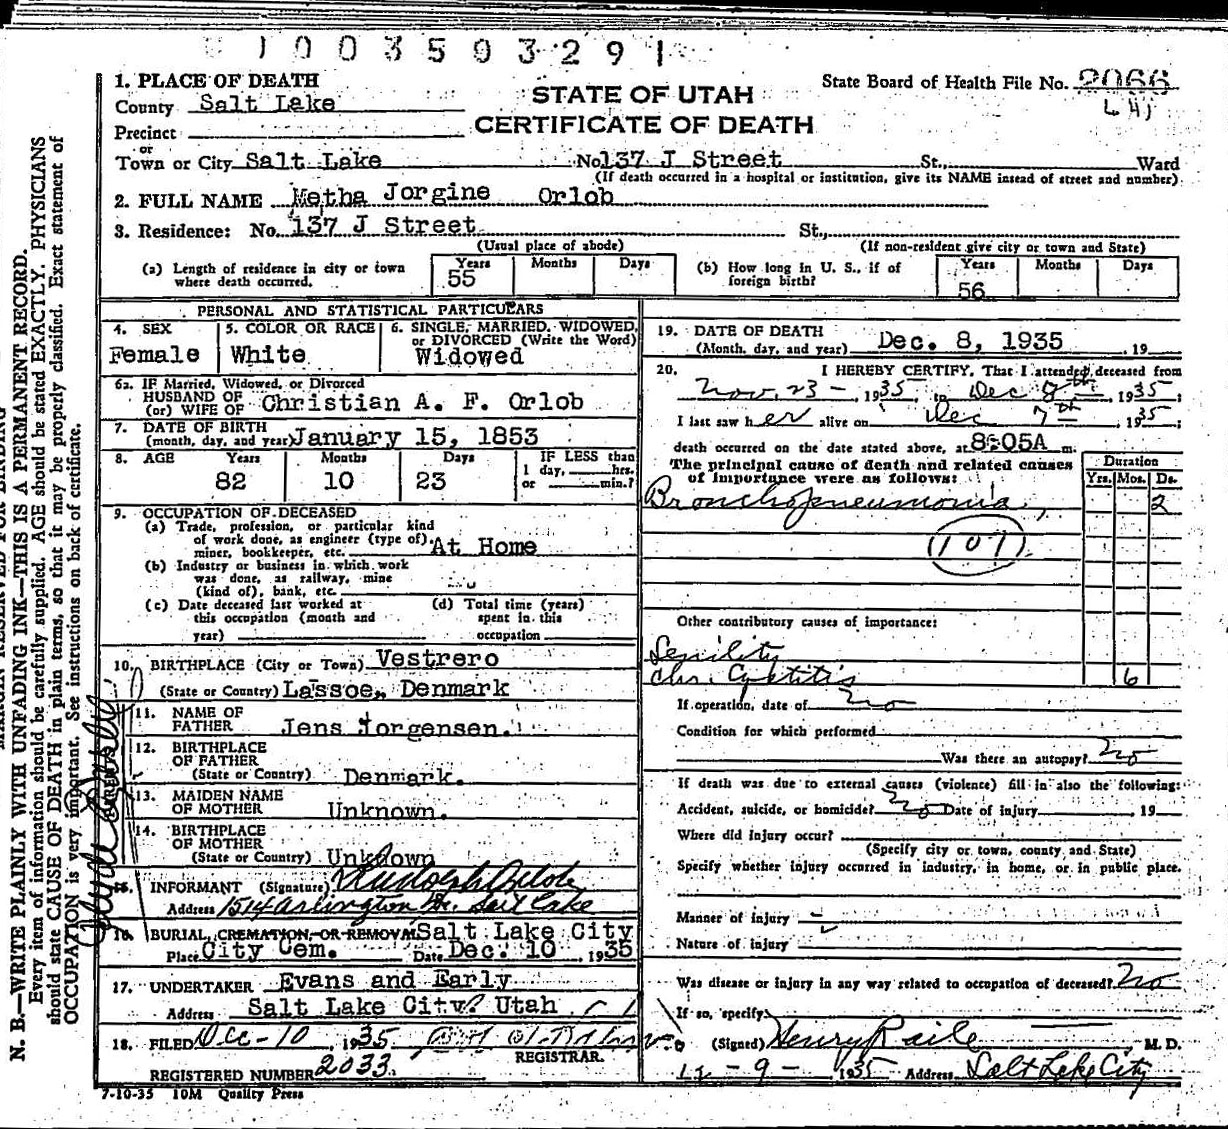 1003503291
1. PLACE OF DEATH
County Salt Lake
Precinct
or
Town or City Salt Lake No. 137 J Street St., Ward
STATE OF UTAH
CERTIFICATE OF DEATH
State Board of Health File No. 2066
(If death occurred in a hospital or institution, give its NAME instead of street and number)
2. FULL NAME Metha Jorgine Orlob
3. Residence: No. 137 J Street St.,
(Usual place of abode) (If non-resident give city or town and State)
(a) Length of residence in city or town where death occurred. Years 55 Months Days
(b) How long in U. S., if of foreign birth? Years 56 Months Days
PERSONAL AND STATISTICAL PARTICULARS
4. SEX Female
5. COLOR OR RACE White
6. SINGLE, MARRIED, WIDOWED, or DIVORCED (Write the Word) Widowed
6a. IF Married, Widowed, or Divorced
HUSBAND OF
(or) WIFE OF Christian A. F. Orlob
7. DATE OF BIRTH
(month, day, and year) January 15, 1853
8. AGE Years 82 Months 10 Days 23
IF LESS than
1 day, hrs.
or min.?
9. OCCUPATION OF DECEASED
(a) Trade, profession, or particular kind
of work done, as engineer (type of),
miner, bookkeeper, etc. At Home
(b) Industry or business in which work
was done, as railway, mine
(kind of), bank, etc.
(c) Date deceased last worked at
this occupation (month and
year)
(d) Total time (years)
spent in this
occupation
10. BIRTHPLACE (City or Town) Vestrero
(State or Country) Lassoe, Denmark
11. NAME OF
FATHER Jens Jorgensen.
12. BIRTHPLACE
OF FATHER
(State or Country) Denmark.
13. MAIDEN NAME
OF MOTHER Unknown.
14. BIRTHPLACE
OF MOTHER
(State or Country) Unknown
15. INFORMANT (Signature)
Address 1514 Arlington Dr. Salt Lake
16. BURIAL, CREMATION, OR REMOVAL Salt Lake City
Place City Cem. Date Dec. 10, 1935
17. UNDERTAKER Evans and Early
Address Salt Lake City, Utah
18. FILED Dec-10, 1935
REGISTRAR.
REGISTERED NUMBER 2033
7-10-35 10M Quality Press
19. DATE OF DEATH
(Month, day, and year) Dec. 8, 1935, 19
20. I HEREBY CERTIFY, That I attended deceased from
Nov. 23 - , 1935, to Dec 8th, 1935;
I last saw her alive on Dec 7th, 1935;
death occurred on the date stated above, at 8:05A m.
The principal cause of death and related causes
of importance were as follows:
Duration
Yrs. Mos. Ds.
Bronchopneumonia, 2
107
Other contributory causes of importance:
Senility
Chr. Cystitis 6
If operation, date of no
Condition for which performed
Was there an autopsy? no
If death was due to external causes (violence) fill in also the following:
Accident, suicide, or homicide? no Date of injury , 19
Where did injury occur?
(Specify city or town, county and State)
Specify whether injury occurred in industry, in home, or in public place.
Manner of injury
Nature of injury
Was disease or injury in any way related to occupation of deceased? no
If so, specify
(Signed) Henry Raile, M. D.
12 - 9 - 1935 Address Salt Lake City
MARGIN RESERVED FOR BINDING
N. B.—WRITE PLAINLY WITH UNFADING INK—THIS IS A PERMANENT RECORD.
Every item of information should be carefully supplied. AGE should be stated EXACTLY. PHYSICIANS
should state CAUSE OF DEATH in plain terms, so that it may be properly classified. Exact statement of
OCCUPATION is very important. See instructions on back of certificate.